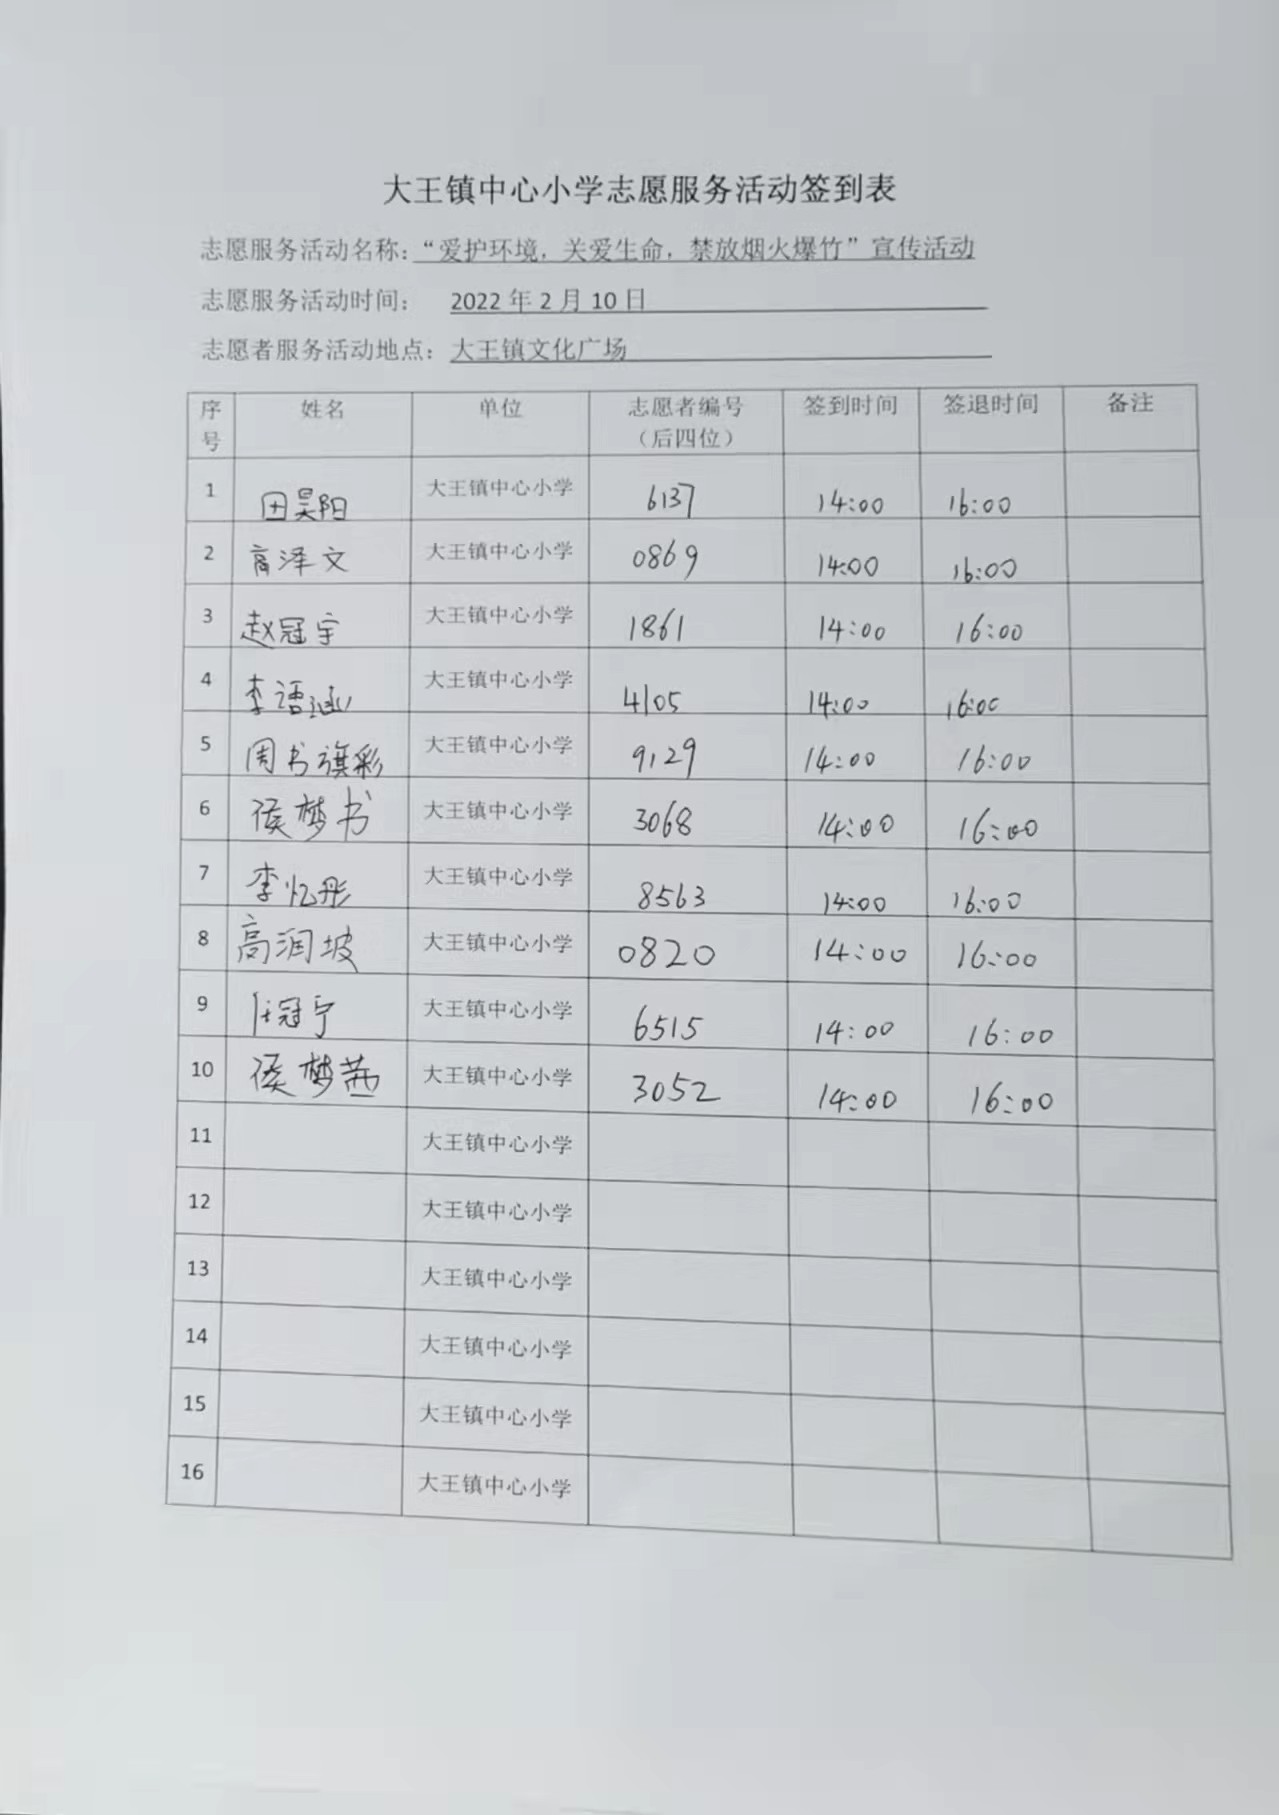 大王镇中心小学志愿服务活动签到表
志愿服务活动名称：“爱护环境，关爱生命，禁放烟火爆竹”宣传活动
志愿服务活动时间： 2022 年 2 月 10 日
志愿者服务活动地点：大王镇文化广场
序号 姓名 单位 志愿者编号（后四位） 签到时间 签退时间 备注
1 田昊阳 大王镇中心小学 6137 14:00 16:00
2 高泽文 大王镇中心小学 0869 14:00 16:00
3 赵冠宇 大王镇中心小学 1861 14:00 16:00
4 李语涵 大王镇中心小学 4105 14:00 16:00
5 周书旗彩 大王镇中心小学 9129 14:00 16:00
6 侯梦书 大王镇中心小学 3068 14:00 16:00
7 李忆彤 大王镇中心小学 8563 14:00 16:00
8 高润坡 大王镇中心小学 0820 14:00 16:00
9 任冠宁 大王镇中心小学 6515 14:00 16:00
10 侯梦茜 大王镇中心小学 3052 14:00 16:00
11 大王镇中心小学
12 大王镇中心小学
13 大王镇中心小学
14 大王镇中心小学
15 大王镇中心小学
16 大王镇中心小学